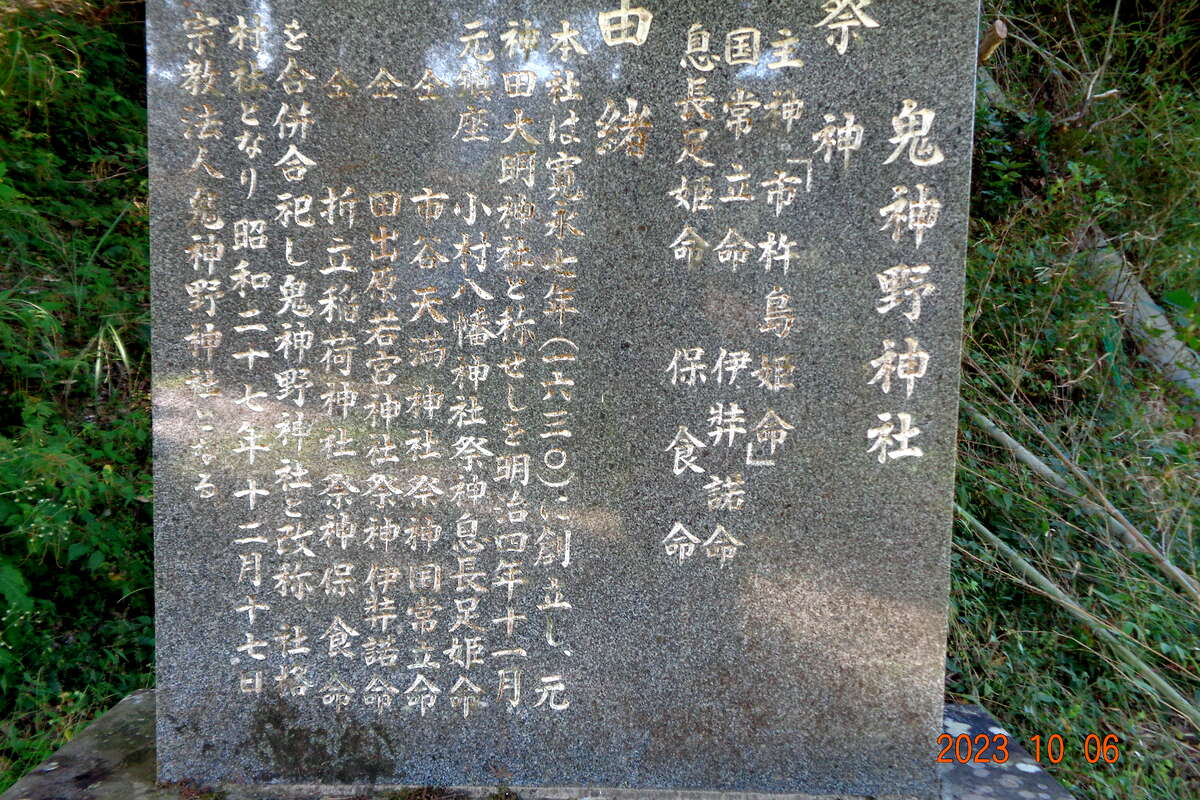 鬼神野神社
祭神
主神「市杵島姫命」
国常立命 伊弉諾命
息長足姫命 保食命
由緒
本社は寛永七年(一六三〇)に創立し、元
神田大明神社と称せしを明治四年十一月
元鎮座 小村八幡神社祭神息長足姫命
仝 市谷天満神社祭神国常立命
仝 田出原若宮神社祭神伊弉諾命
仝 折立稲荷神社祭神保食命
を合併合祀し鬼神野神社と改称 社格
村社となり昭和二十七年十二月十七日
宗教法人鬼神野神社となる
2023 10 06